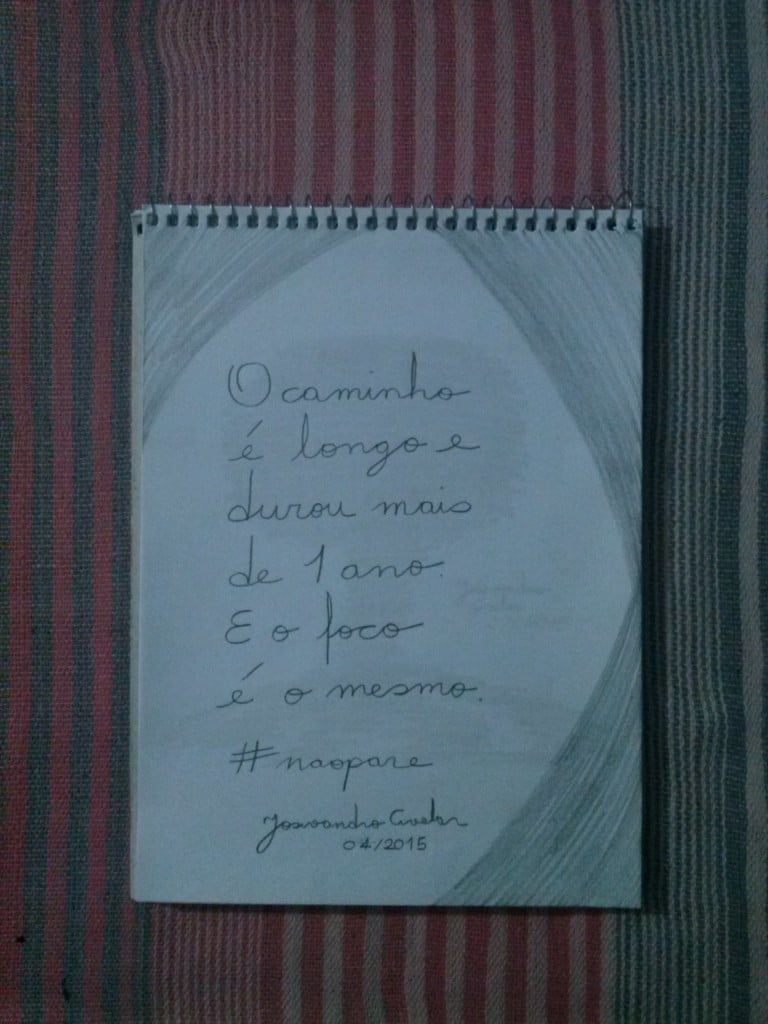 O caminho
é longo e
durou mais
de 1 ano.
E o foco
é o mesmo.
#naopare
Josvandro Avelar
04/2015